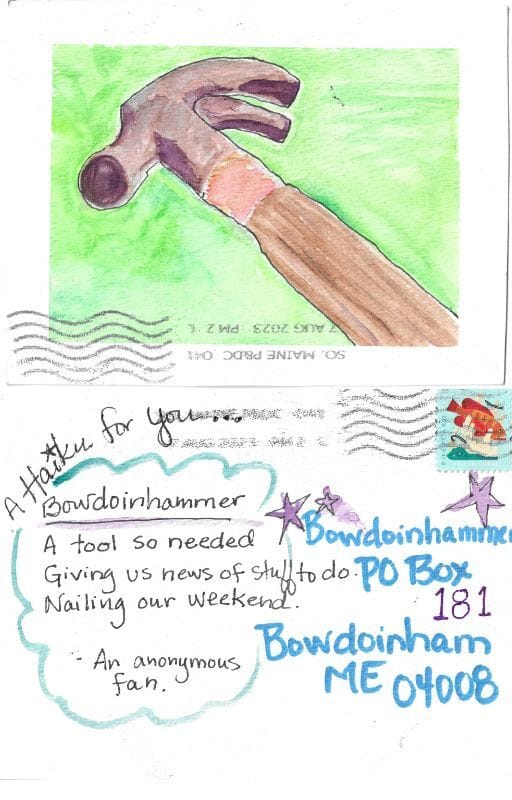 SO. MAINE P&DC 041
7 AUG 2023 PM 2 L
A Haiku for You...
Bowdoinhammer
A tool so needed
Giving us news of stuff to do.
Nailing our weekend.
- An anonymous
fan.
Bowdoinhammer
PO Box
181
Bowdoinham
ME 04008